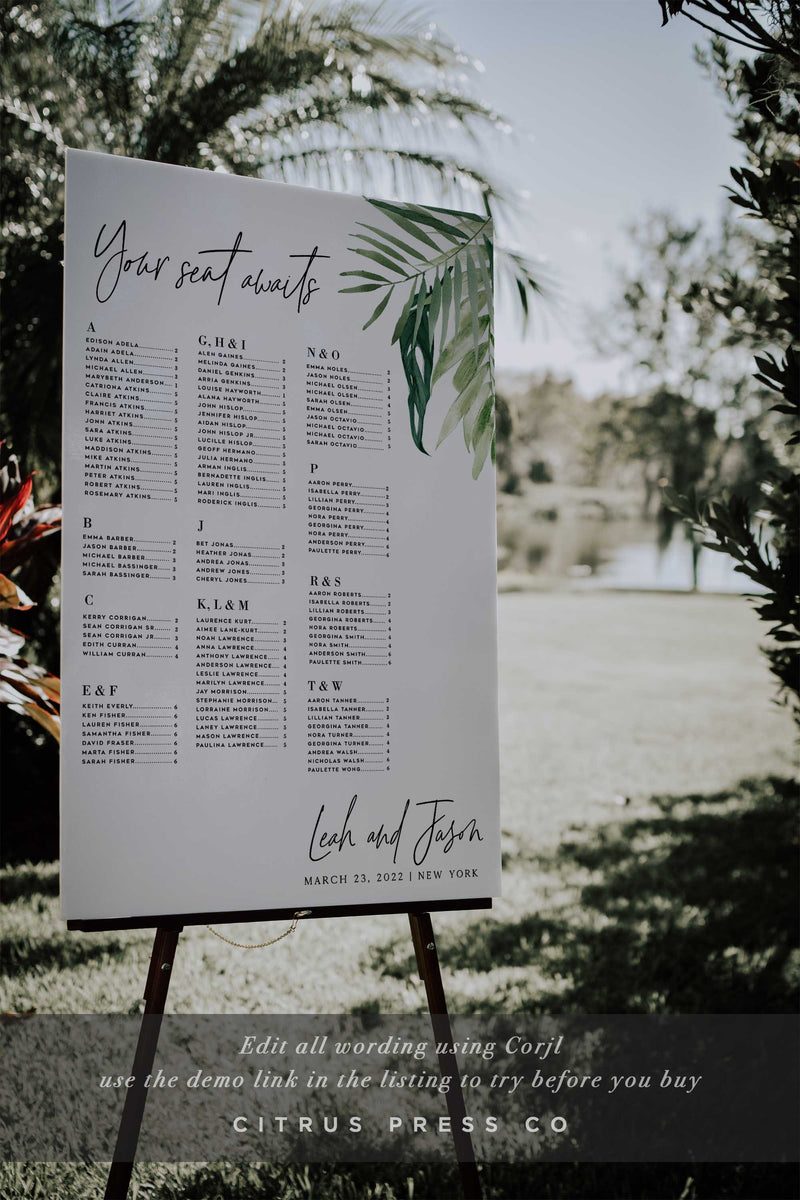 Your seat awaits
A
EDISON ADELA 2
ADAIN ADELA 2
LYNDA ALLEN 3
MICHAEL ALLEN 3
MARYBETH ANDERSON 1
CATRIONA ATKINS 5
CLAIRE ATKINS 5
FRANCIS ATKINS 5
HARRIET ATKINS 5
JOHN ATKINS 5
SARA ATKINS 5
LUKE ATKINS 5
MADDISON ATKINS 5
MIKE ATKINS 5
MARTIN ATKINS 5
PETER ATKINS 5
ROBERT ATKINS 5
ROSEMARY ATKINS 5
B
EMMA BARBER 2
JASON BARBER 2
MICHAEL BARBER 3
MICHAEL BASSINGER 3
SARAH BASSINGER 3
C
KERRY CORRIGAN 2
SEAN CORRIGAN SR 2
SEAN CORRIGAN JR 3
EDITH CURRAN 4
WILLIAM CURRAN 4
E & F
KEITH EVERLY 6
KEN FISHER 6
LAUREN FISHER 6
SAMANTHA FISHER 6
DAVID FRASER 6
MARTA FISHER 6
SARAH FISHER 6
G, H & I
ALEN GAINES 2
MELINDA GAINES 2
DANIEL GENKINS 3
ARRIA GENKINS 3
LOUISE HAYWORTH 1
ALANA HAYWORTH 1
JOHN HISLOP 5
JENNIFER HISLOP 5
AIDAN HISLOP 5
JOHN HISLOP JR 5
LUCILLE HISLOP 5
GEOFF HERMANO 5
JULIA HERMANO 5
ARMAN INGLIS 5
BERNADETTE INGLIS 5
LAUREN INGLIS 5
MARI INGLIS 5
RODERICK INGLIS 5
J
BET JONAS 2
HEATHER JONAS 2
ANDREA JONAS 3
ANDREW JONES 3
CHERYL JONES 3
K, L & M
LAURENCE KURT 2
AIMEE LANE-KURT 2
NOAH LAWRENCE 3
ANNA LAWRENCE 4
ANTHONY LAWRENCE 4
ANDERSON LAWRENCE 4
LESLIE LAWRENCE 4
MARILYN LAWRENCE 4
JAY MORRISON 5
STEPHANIE MORRISON 5
LORRAINE MORRISON 5
LUCAS LAWRENCE 5
LANEY LAWRENCE 5
MASON LAWRENCE 5
PAULINA LAWRENCE 5
N & O
EMMA NOLES 2
JASON NOLES 2
MICHAEL OLSEN 3
MICHAEL OLSEN 4
SARAH OLSEN 4
EMMA OLSEN 4
JASON OCTAVIO 5
MICHAEL OCTAVIO 5
MICHAEL OCTAVIO 5
SARAH OCTAVIO 5
P
AARON PERRY 2
ISABELLA PERRY 2
LILLIAN PERRY 3
GEORGINA PERRY 4
NORA PERRY 4
GEORGINA PERRY 4
NORA PERRY 4
ANDERSON PERRY 6
PAULETTE PERRY 6
R & S
AARON ROBERTS 2
ISABELLA ROBERTS 2
LILLIAN ROBERTS 3
GEORGINA ROBERTS 4
NORA ROBERTS 4
GEORGINA SMITH 4
NORA SMITH 4
ANDERSON SMITH 6
PAULETTE SMITH 6
T & W
AARON TANNER 2
ISABELLA TANNER 2
LILLIAN TANNER 3
GEORGINA TANNER 4
NORA TURNER 4
GEORGINA TURNER 4
ANDREA WALSH 4
NICHOLAS WALSH 6
PAULETTE WONG 6
Leah and Jason
MARCH 23, 2022 | NEW YORK
Edit all wording using Corjl
use the demo link in the listing to try before you buy
CITRUS PRESS CO